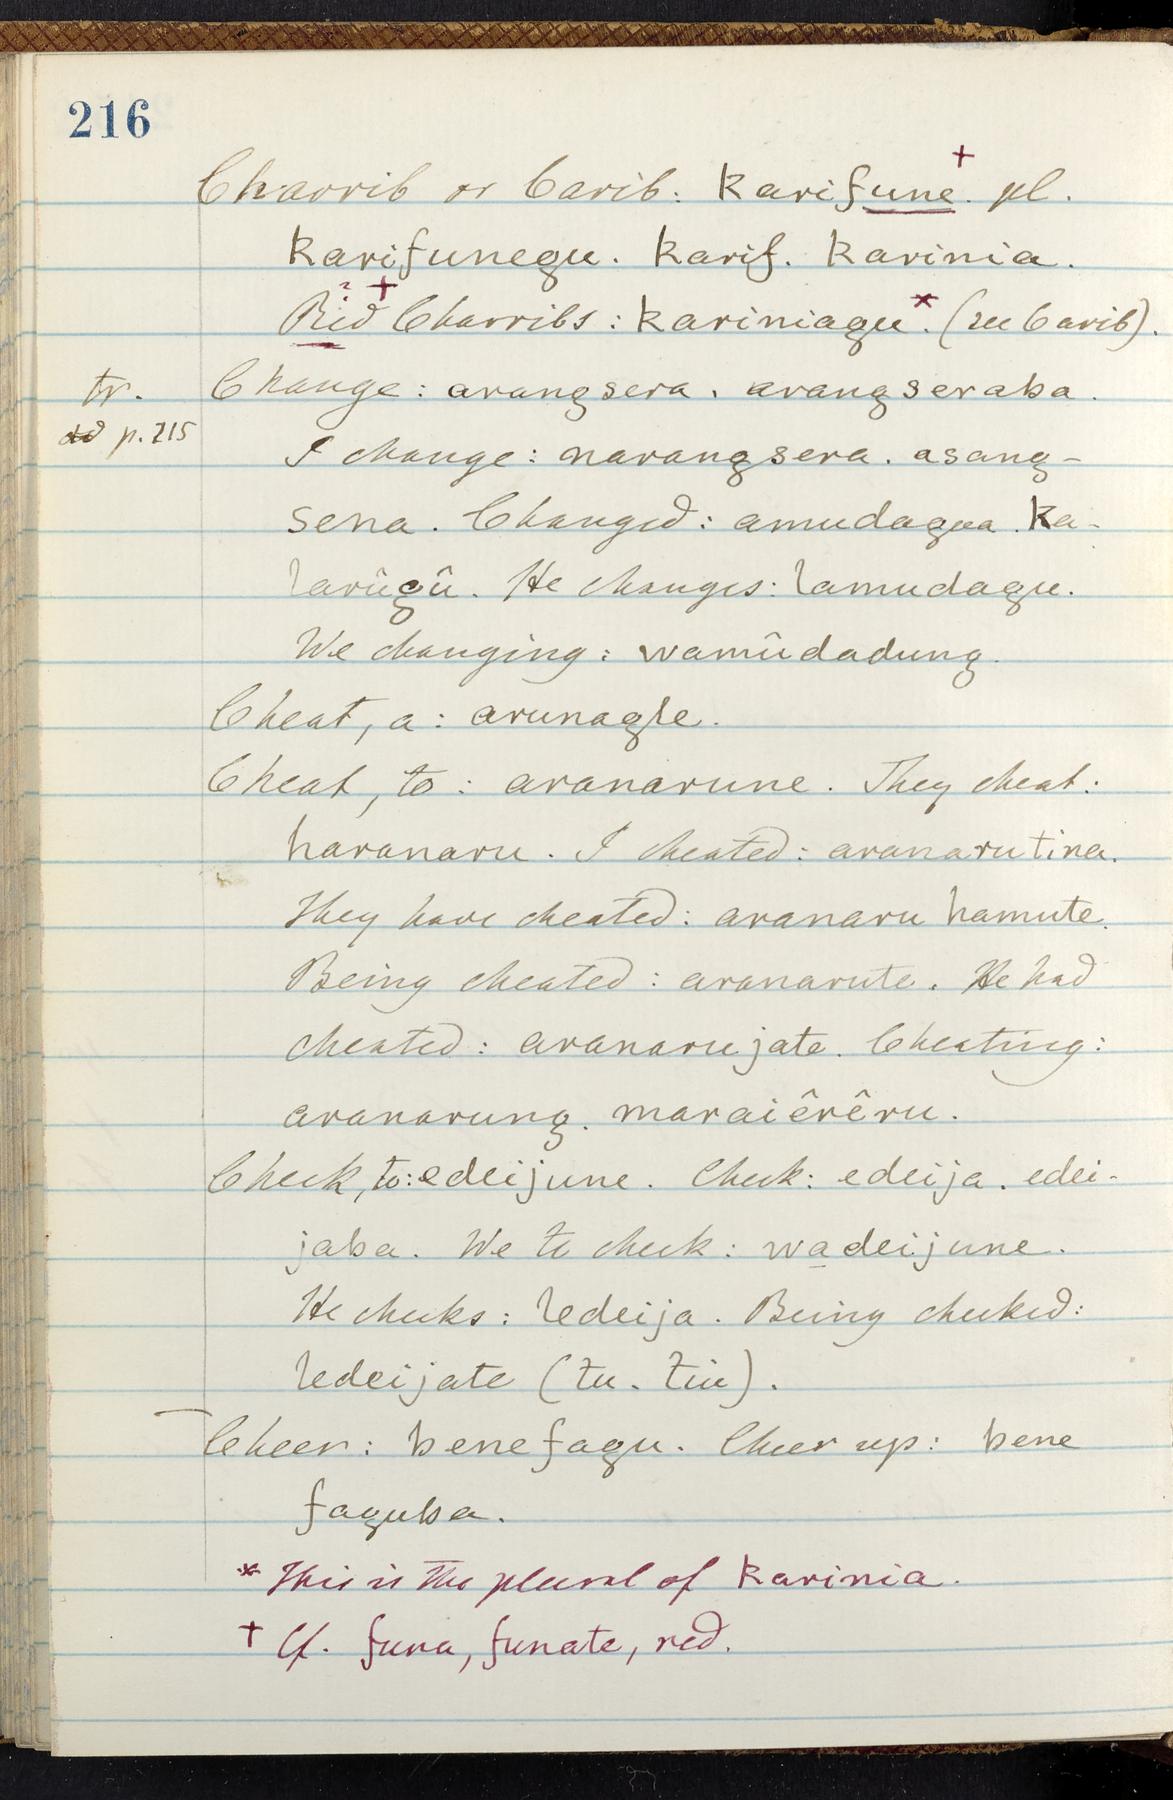 216
Charrib or Carib: karifune.† pl.
karifunegu. karif. karinia.
? †
Red Charribs: kariniagu*. (see Carib).
tr. Change: arangsera. arangseraba.
p. 215 I change: narangsera. asang-
sena. Changed: amudagua. ka-
larûgû. He changes: lamudagu.
We changing: wamûdadung.
Cheat, a: arunagle.
Cheat, to: aranarune. They cheat:
haranaru. I cheated: aranarutina.
They have cheated: aranaru hamute.
Being cheated: aranarute. He had
cheated: aranarujate. Cheating:
aranarung. maraiêrêru.
Check, to: edeijune. Check: edeija. edei-
jaba. We to check: wadeijune.
He checks: ledeija. Being checked:
ledeijate (tu. tiu).
Cheer: benefagu. Cheer up: bene
faguba.
* This is the plural of karinia.
† Cf. funa, funate, red.